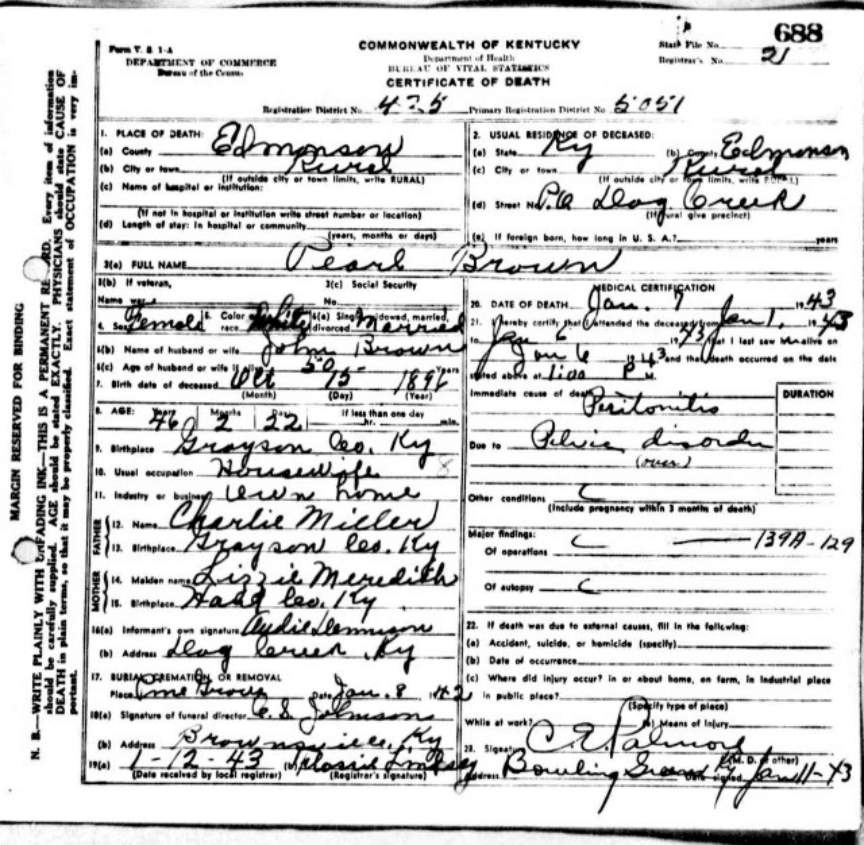 688
Form V. S. 1-A
DEPARTMENT OF COMMERCE
Bureau of the Census
COMMONWEALTH OF KENTUCKY
Department of Health
BUREAU OF VITAL STATISTICS
CERTIFICATE OF DEATH
State File No.
Registrar's No. 21
Registration District No. 435 Primary Registration District No. 5051
MARGIN RESERVED FOR BINDING
N. B.—WRITE PLAINLY WITH UNFADING INK—THIS IS A PERMANENT RECORD. Every item of information
should be carefully supplied. AGE should be stated EXACTLY. PHYSICIANS should state CAUSE OF
DEATH in plain terms, so that it may be properly classified. Exact statement of OCCUPATION is very im-
portant.
1. PLACE OF DEATH:
(a) County Edmonson
(b) City or town Rural
(If outside city or town limits, write RURAL)
(c) Name of hospital or institution:
(If not in hospital or institution write street number or location)
(d) Length of stay: In hospital or community
(years, months or days)
2. USUAL RESIDENCE OF DECEASED:
(a) State Ky (b) County Edmonson
(c) City or town Rural
(If outside city or town limits, write RURAL)
(d) Street No. P.O. Dog Creek
(If rural give precinct)
(e) If foreign born, how long in U. S. A.? years
3(a) FULL NAME Pearl Brown
3(b) If veteran,
Name war
3(c) Social Security
No.
4. Sex Female 5. Color or race White 6(a) Single, widowed, married, divorced Married
6(b) Name of husband or wife John Brown
6(c) Age of husband or wife if alive 50 Years
7. Birth date of deceased Oct 15 1896
(Month) (Day) (Year)
8. AGE: Years Months Days If less than one day
46 2 22 hr. min.
9. Birthplace Grayson Co. Ky
10. Usual occupation Housewife 8
11. Industry or business Own home
FATHER
12. Name Charlie Miller
13. Birthplace Grayson Co. Ky
MOTHER
14. Maiden name Lizzie Meredith
15. Birthplace Co. Ky
16(a) Informant's own signature Dennison
(b) Address Dog Creek, Ky
17. BURIAL, CREMATION, OR REMOVAL
Place Pine Grove Date Jan. 8 1942
18(a) Signature of funeral director Johnson
(b) Address Brownsville, Ky
19(a) 1-12-43 (b) Lindsey
(Date received by local registrar) (Registrar's signature)
MEDICAL CERTIFICATION
20. DATE OF DEATH Jan. 7 1943
21. I hereby certify that I attended the deceased from Jan 1, 1943
to Jan 6 1943 that I last saw him alive on
Jan 6 1943 and that death occurred on the date
stated above at 1:00 P M.
Immediate cause of death Peritonitis
DURATION
Due to Pelvic disorder
(over)
Other conditions
(Include pregnancy within 3 months of death)
Major findings:
Of operations 139A-129
Of autopsy
22. If death was due to external causes, fill in the following:
(a) Accident, suicide, or homicide (specify)
(b) Date of occurrence
(c) Where did injury occur? in or about home, on farm, in industrial place
in public place?
(Specify type of place)
While at work? (e) Means of Injury
23. Signature C. E. Palmore
(M. D. or other)
Address Bowling Green Ky Date signed Jan 11-43